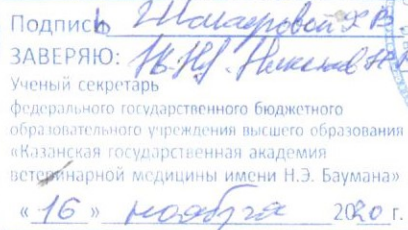 Подпись Шамаровой Х.В.
ЗАВЕРЯЮ:
Ученый секретарь
федерального государственного бюджетного
образовательного учреждения высшего образования
«Казанская государственная академия
ветеринарной медицины имени Н.Э. Баумана»
«16» ноября 2020 г.